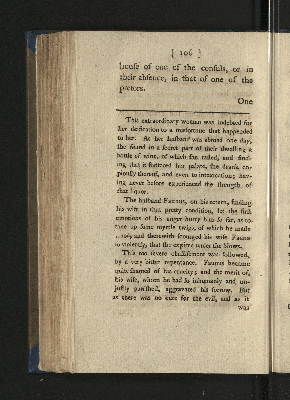 [ 106 ]
house of one of the consuls, or in
their absence, in that of one of the
pretors.
One
This extraordinary woman was indebted for
her deification to a misfortune that happened
to her. As her husband was abroad one day,
she found in a secret part of their dwelling a
bottle of wine, of which she tasted, and find-
ing that it flattered her palate, she drank co-
piously thereof, and even to intoxication; hav-
ing never before experienced the strength of
that liquor.
The husband Faunus, on his return, finding
his wife in that pretty condition, let the first
emotions of his anger hurry him so far, as to
take up some myrtle twigs, of which he made
a rod, and therewith scourged his wife Fauna
so violently, that she expired under the blows.
This too severe chastisement was followed,
by a very bitter repentance. Faunus became
quite ashamed of his cruelty; and the merit of,
his wife, whom he had so inhumanly and un-
justly punished, aggravated his sorrow. But
as there was no cure for the evil, and as it
was